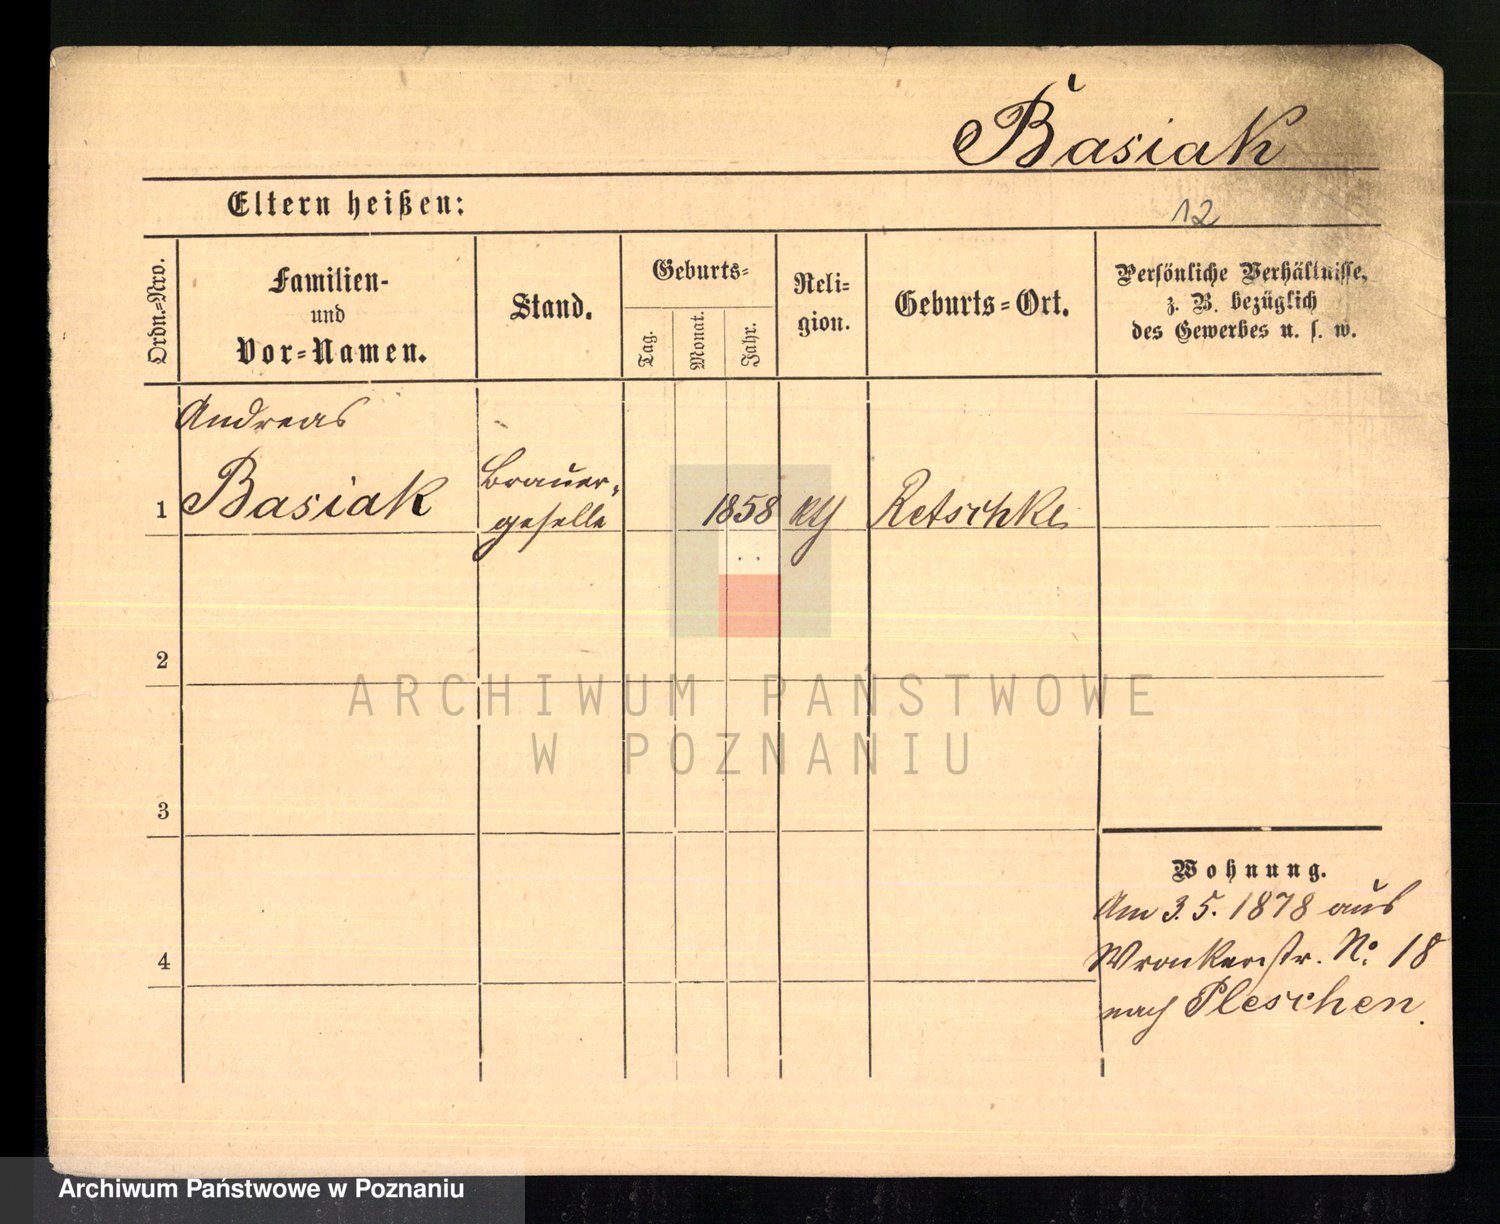 Basiak
Eltern heißen:
12
Ordn.-Nro.
Familien-
und
Vor-Namen.
Stand.
Geburts-
Tag.
Monat.
Jahr.
Reli-
gion.
Geburts-Ort.
Persönliche Verhältnisse,
z. B. bezüglich
des Gewerbes u. s. w.
Andreas
1 Basiak
Brauer-
geselle
1858
kth
Retschke
2
3
4
Wohnung.
Am 3.5.1878 aus
Wronkerstr. No 18
nach Pleschen.
ARCHIWUM PAŃSTWOWE
W POZNANIU
Archiwum Państwowe w Poznaniu